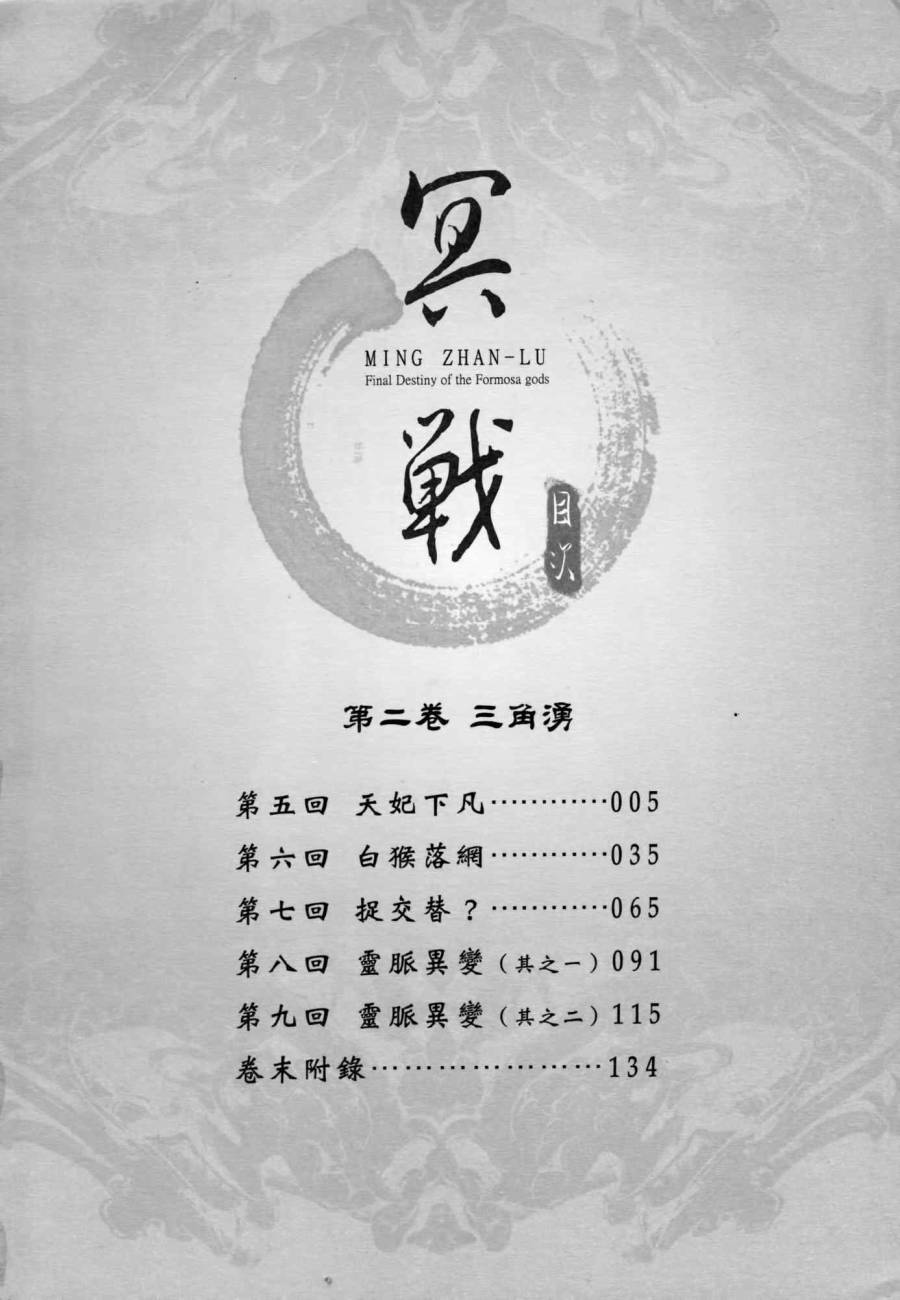 冥
MING ZHAN-LU
Final Destiny of the Formosa gods
戰
目次
第二卷 三角湧
第五回 天妃下凡…………005
第六回 白猴落網…………035
第七回 捉交替？…………065
第八回 靈脈異變（其之一）091
第九回 靈脈異變（其之二）115
卷末附錄…………………134